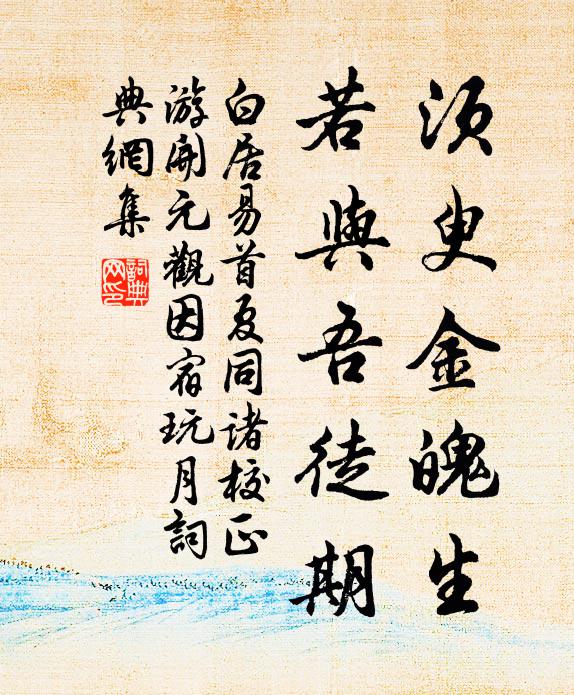 须臾金魄生
若與吾徒期
白居易首夏同諸校正
游開元觀因宿玩月詞
典網集
詞典网印